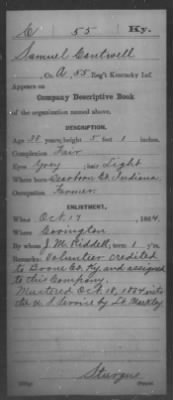 C 55 Ky.
Samuel Cantwell
Co. A, 55 Reg't Kentucky Inf.
Appears on
Company Descriptive Book
of the organization named above.
DESCRIPTION.
Age 38 years; height 5 feet 1 inches.
Complexion Fair
Eyes Grey; hair Light
Where born Dearborn Co. Indiana
Occupation Farmer
ENLISTMENT.
When Oct. 17, 1864.
Where Covington
By whom J. M. Riddell; term 1 y'rs.
Remarks: Volunteer credited
to Boone Co. Ky. and assigned
to this Company.
Mustered Oct. 18, 1864 into
the U. S. Service by Lt.
Sturgus